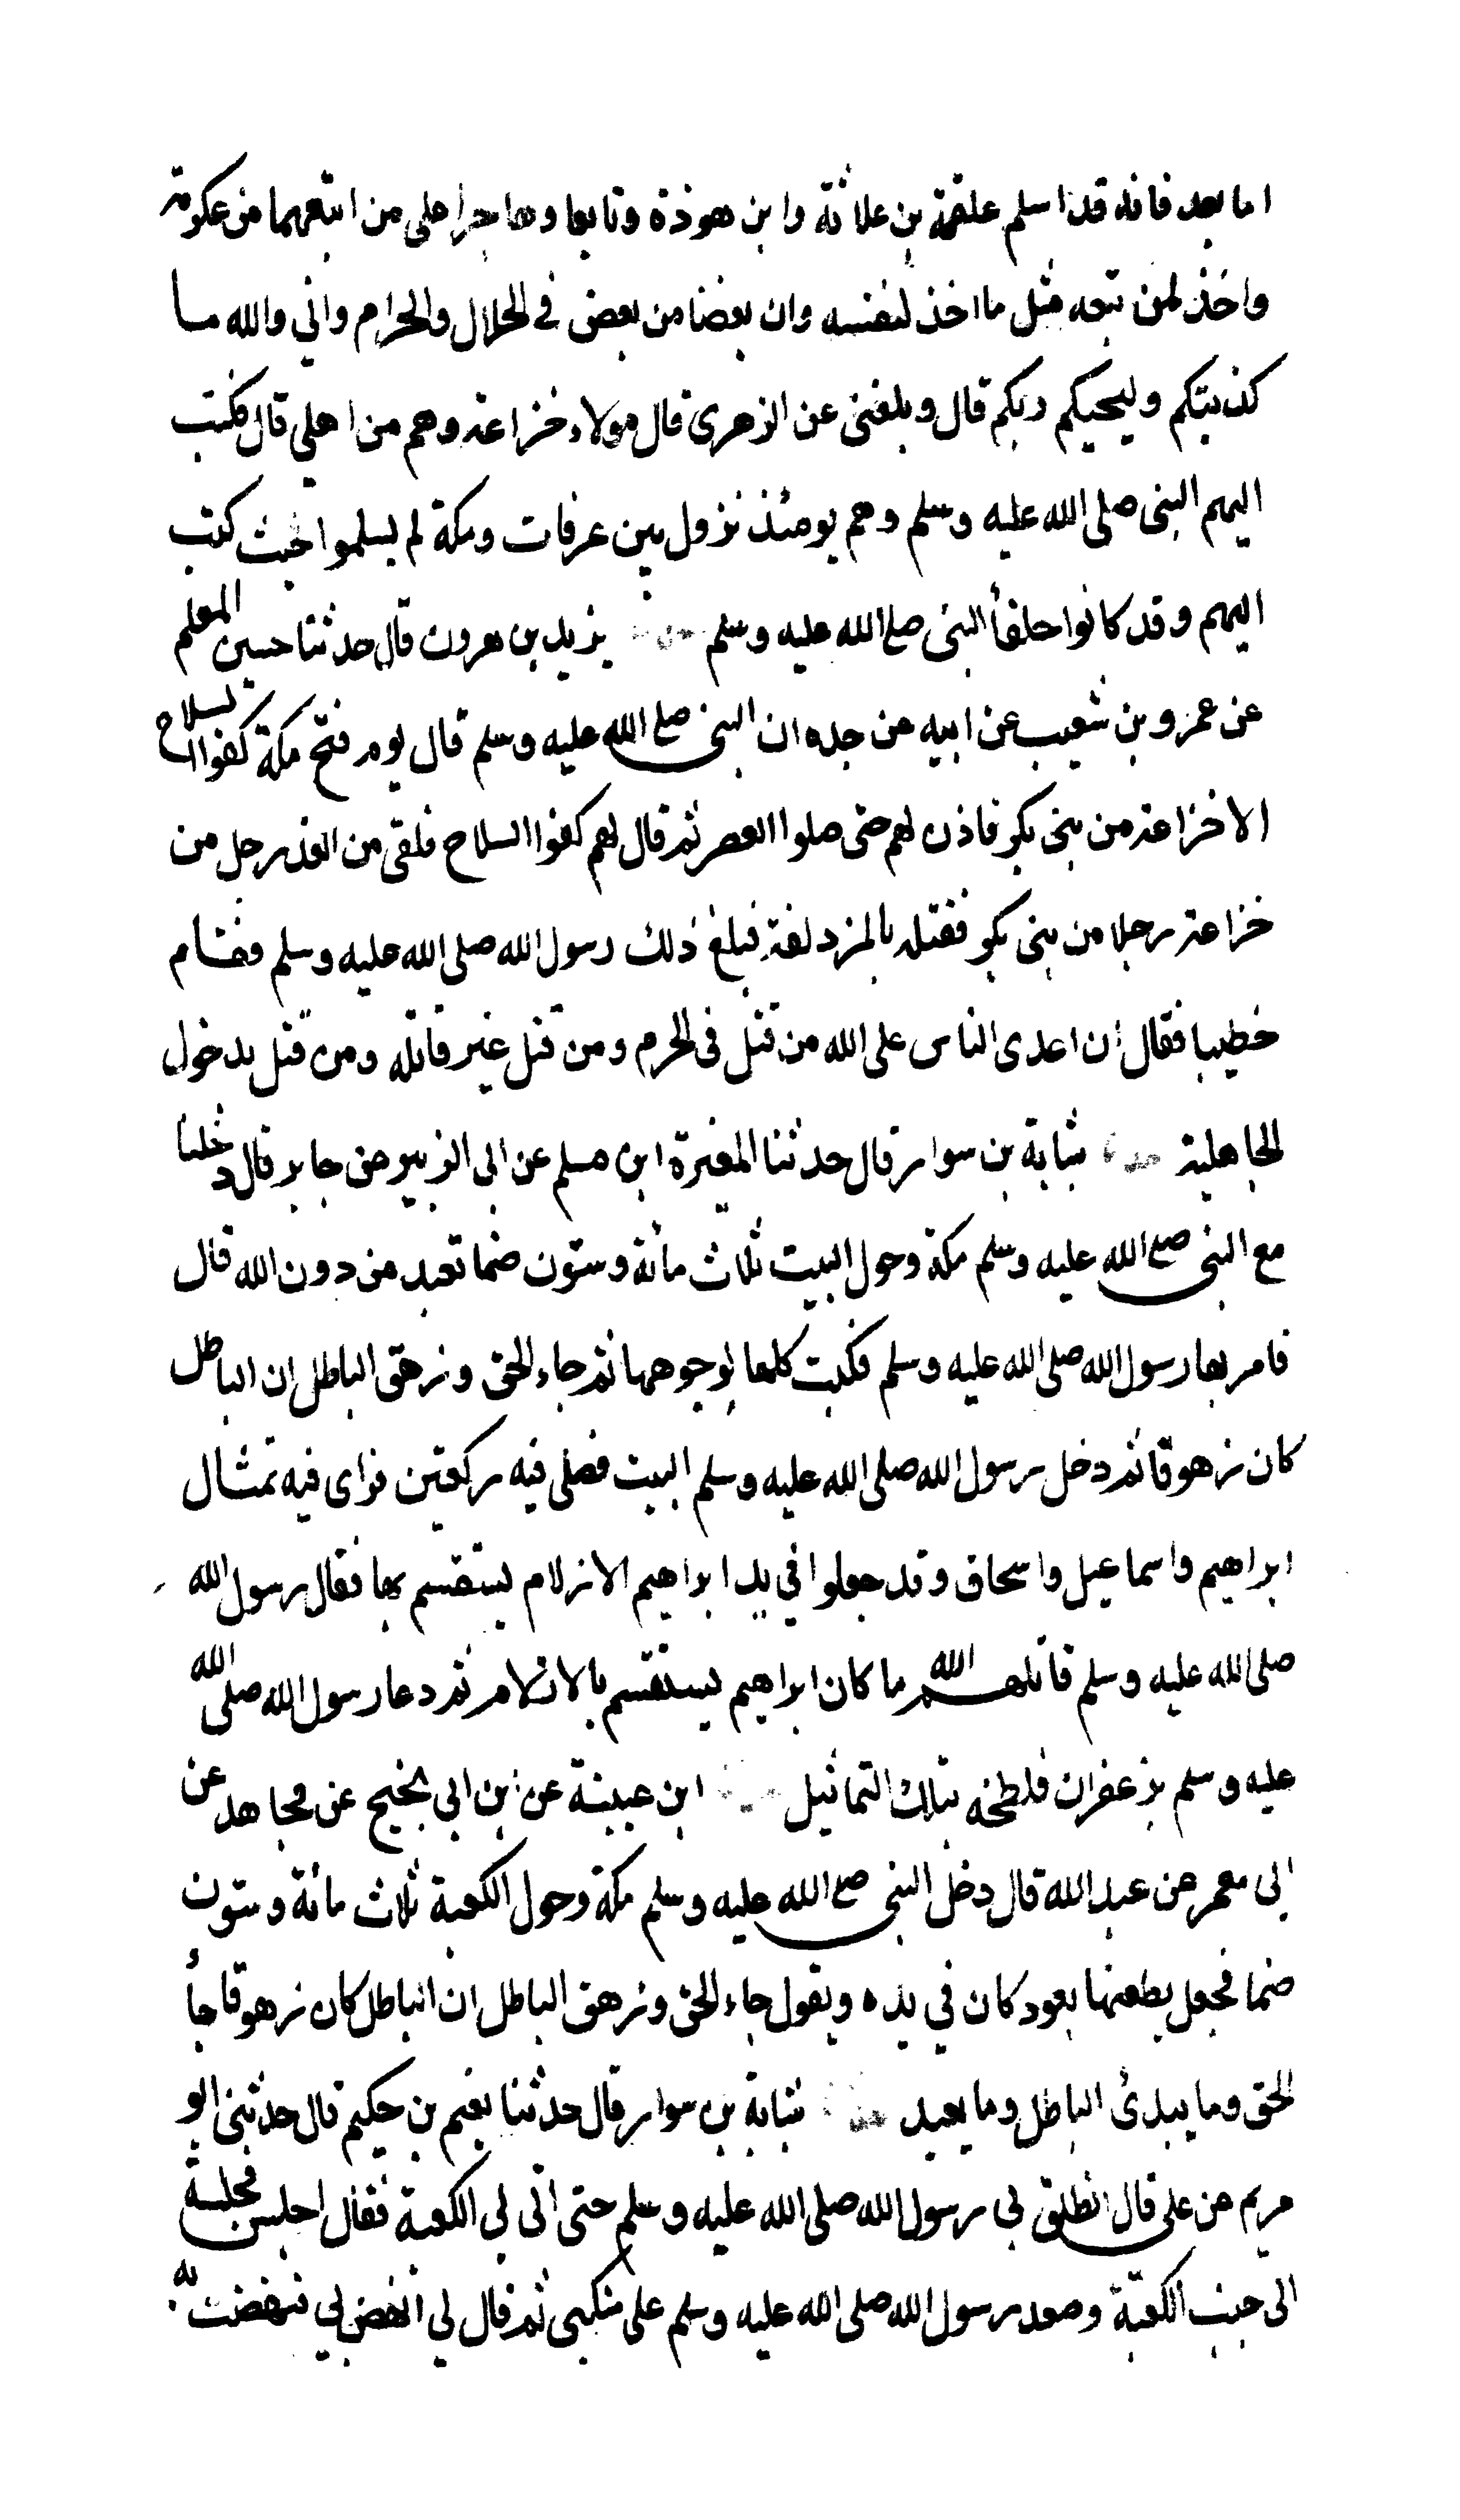 اما بعد فانه قد اسلم علقمة بن علاثة وابن هوذة وتابعا وهاجرا على من اتبعهما من عكرمة
واخذ لمن تبعه مثل ما اخذ لنفسه وان بعضا من بعض في الحلال والحرام واني والله مــا
كذبتكم وليحيكم ربكم قال وبلغنى عن الزهرى قال هولاء خزاعة وهم من اهلى قال فكتب
اليهم النبى صلى الله عليه وسلم وهم يومئذ نزول بين عرفات ومكة لم يسلموا حيث كتب
اليهم وقد كانوا حلفأ النبى صلع الله عليه وسلم يزيد بن هرون قال حدثنا حسين المعلم
عن عمرو بن شعيب عن ابيه عن جده ان النبى صلع الله عليه وسلم قال يوم فتح مكة كفوا السلاح
الا خزاعة من بنى بكر فاذن لهم حتى صلوا العصر ثم قال لهم كفوا السلاح فلقى من الغد رجل من
خزاعة رجلا من بنى بكر فقتله بالمزدلفة فبلغ ذلك رسول الله صلى الله عليه وسلم فقــام
خطيبا فقال ان اعدى الناس على الله من قتل فى الحرم ومن قتل غير قاتله ومن قتل بدخول
الجاهلية شبابة بن سوار قال حدثنا المغيرة ابن مسلم عن ابى الزبير عن جابر قال دخلنا
مع النبى صلع الله عليه وسلم مكة وحول البيت ثلاث مائة وستون صنما تعبد من دون الله قال
فامر بها رسول الله صلى الله عليه وسلم فكبت كلها لوجوهها ثم جاء الحق وزهق الباطل ان الباطل
كان زهوقا ثم دخل رسول الله صلى الله عليه وسلم البيت فصلى فيه ركعتين فراى فيه تمثــال
ابراهيم واسماعيل واسحاق وقد جعلوا في يد ابراهيم الازلام يستقسم بها فقال رسول الله
صلى الله عليه وسلم قاتلهم الله ما كان ابراهيم يستقسم بالازلام ثم دعا رسول الله صلى الله
عليه وسلم بزعفران فلطخه بتلك التماثيل ابن عيينة عن ابن ابي نجيح عن مجاهد عن
ابى معمر عن عبد الله قال دخل النبى صلع الله عليه وسلم مكة وحول الكعبة ثلاث مائة وستون
صنما فجعل يطعنها بعود كان في يده ويقول جاء الحق وزهق الباطل ان الباطل كان زهوقا جأ
الحق وما يبدئ الباطل وما يعيد شبابة بن سوار قال حدثنا نعيم بن حكيم قال حدثنى ابو
مريم عن على قال انطلق بى رسول الله صلى الله عليه وسلم حتى اتى بى الكعبة فقال اجلس فجلست
الى جنب الكعبة وصعد رسول الله صلى الله عليه وسلم على منكبى ثم قال لي انهض بي فنهضت به